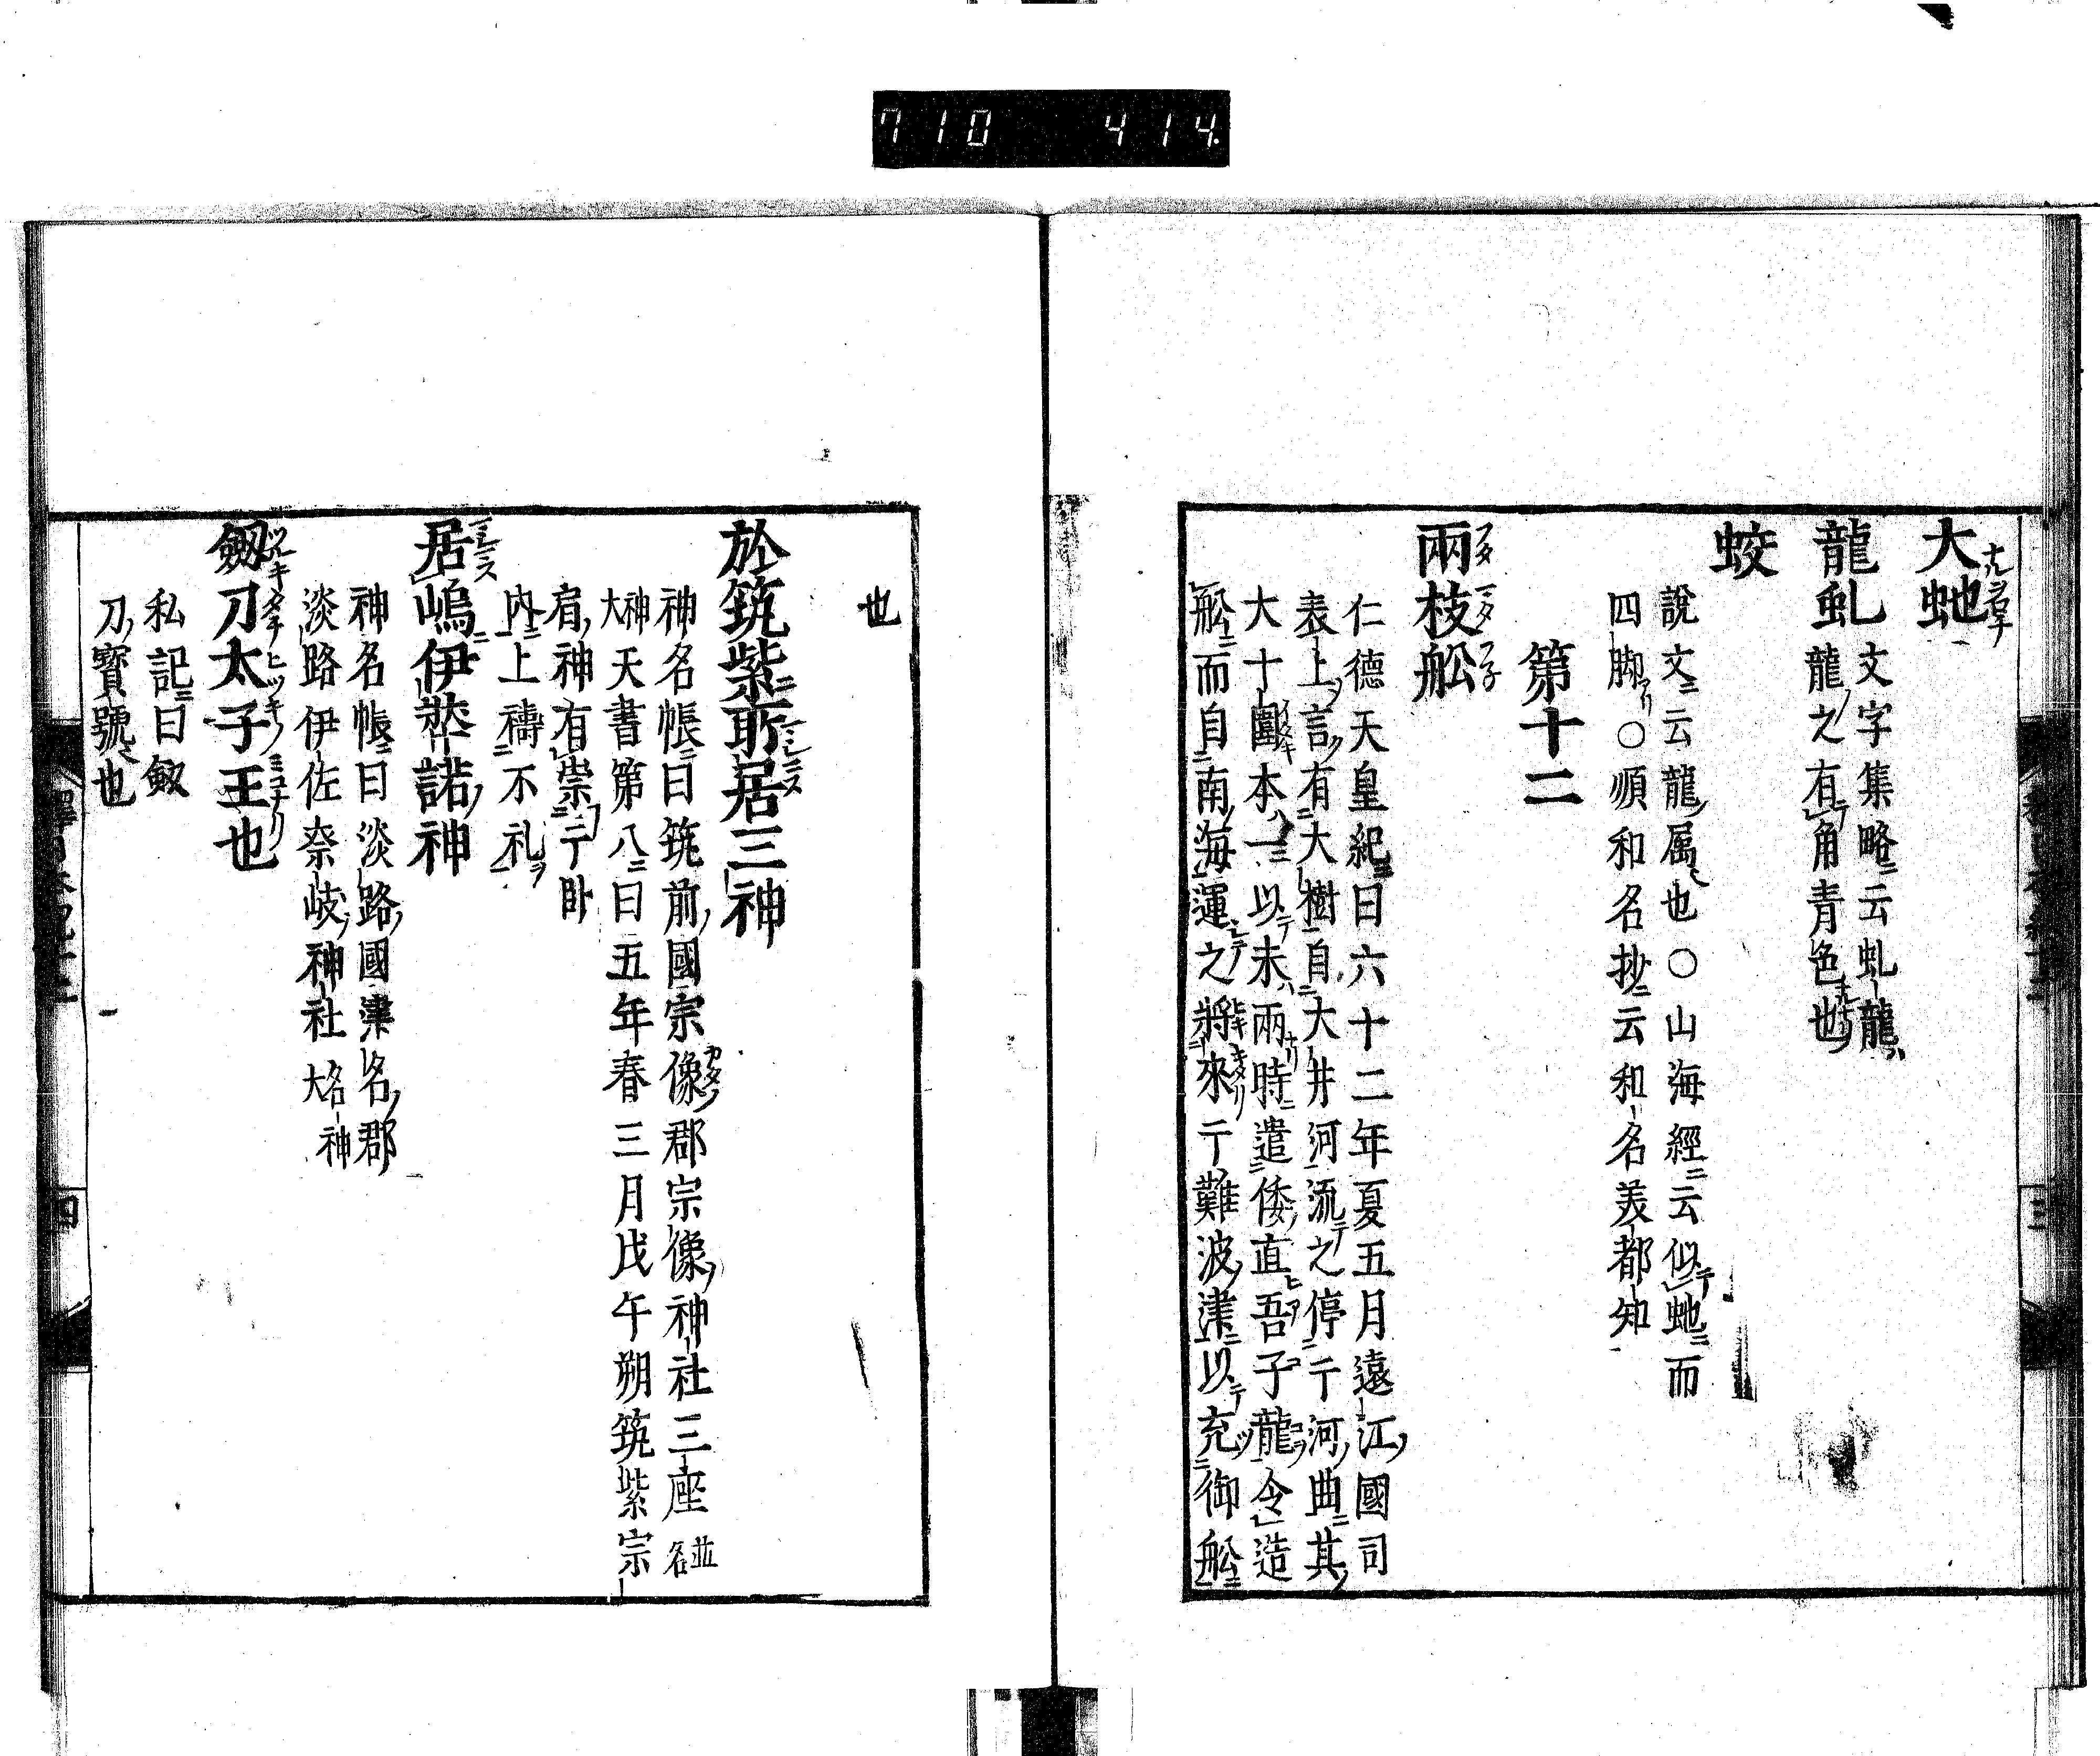 710 414
大虵
龍虬 文字集略云虬龍
龍之有角青色也
蛟
說文云龍属也〇山海經云似虵而
四脚〇順和名抄云和名美都知
第十二
兩枝舩
仁德天皇紀曰六十二年夏五月遠江國司
表上言有大樹自大井河流之停于河曲其
大十圍本一以末兩時遣倭直吾子龍令造
舩而自南海運之將來于難波津以充御舩
三
也
於筑紫所居三神
神名帳曰筑前國宗像郡宗像神社三座並名
神大 天書第八曰五年春三月戊午朔筑紫宗
肩神有崇于卧
内上禱不礼
居嶋伊奘諾神
神名帳曰淡路國津名郡
淡路伊佐奈岐神社名神大
劔刀太子王也
私記曰劔
刀寶號也
四